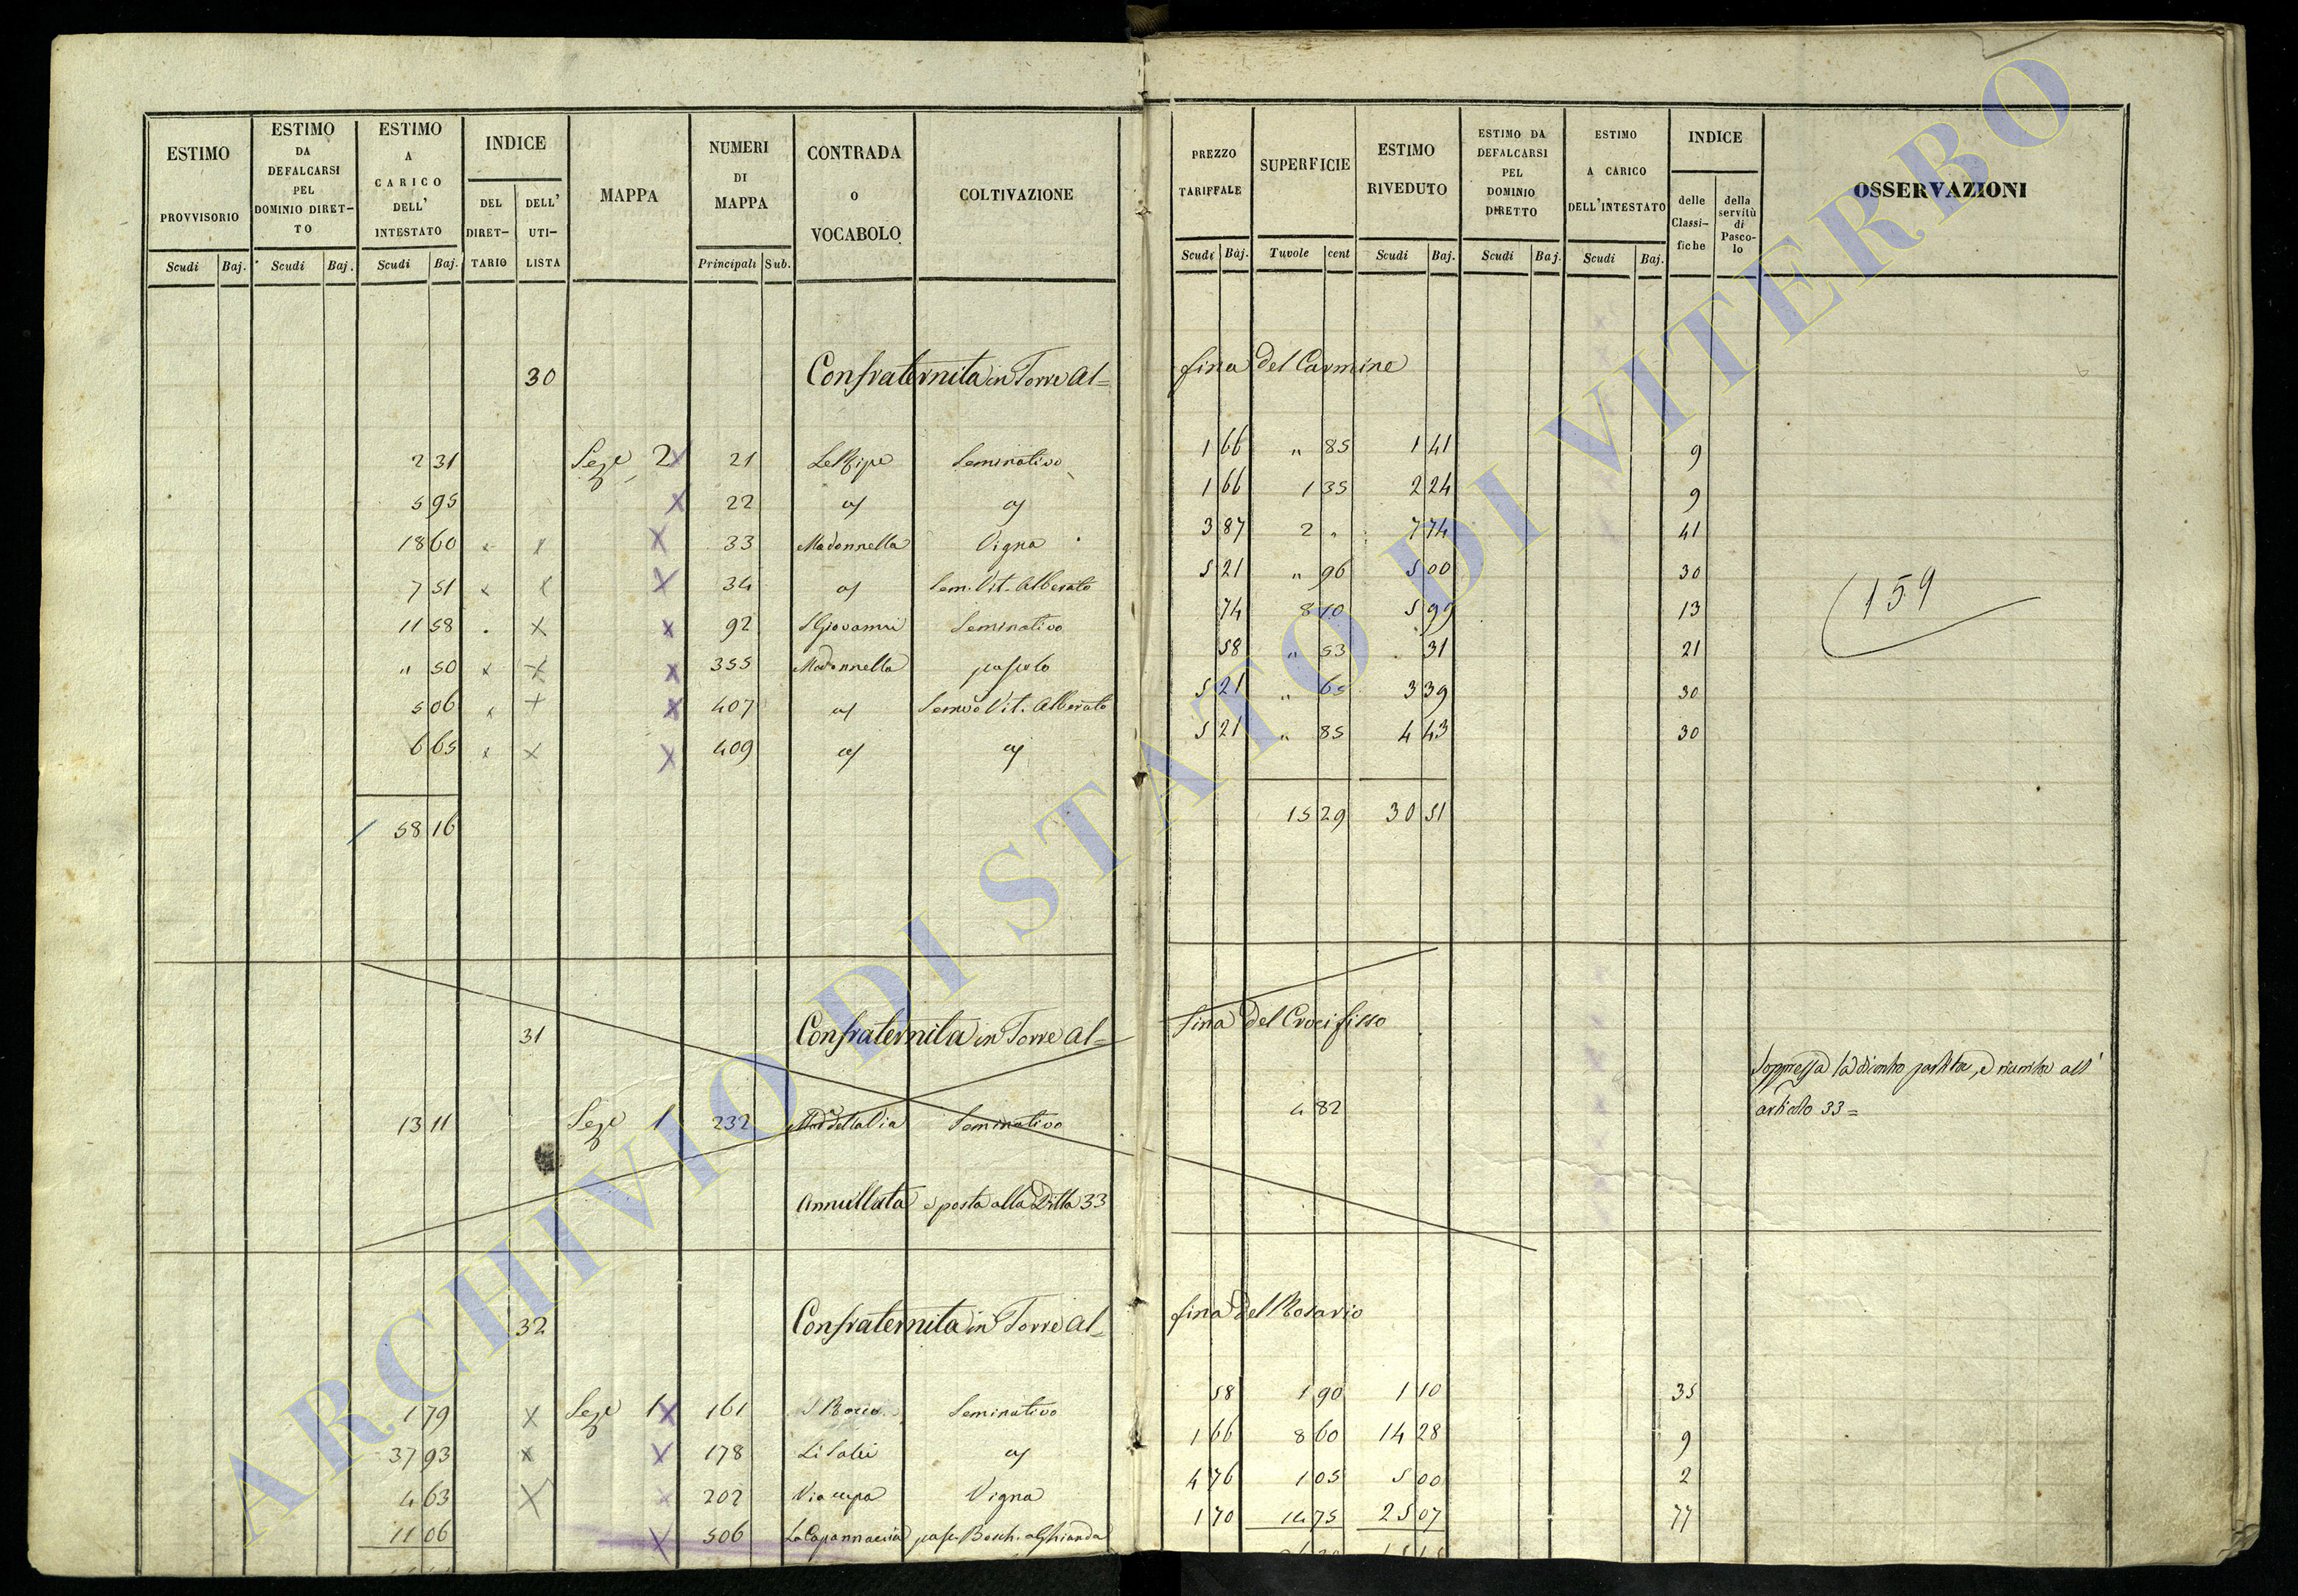 ESTIMO PROVVISORIO Scudi Baj.
ESTIMO DA DEFALCARSI PEL DOMINIO DIRETTO Scudi Baj.
ESTIMO A CARICO DELL' INTESTATO Scudi Baj.
INDICE DEL DIRETTARIO DELL' UTILISTA
MAPPA
NUMERI DI MAPPA Principali Sub.
CONTRADA O VOCABOLO
COLTIVAZIONE
PREZZO TARIFFALE Scudi Baj.
SUPERFICIE Tuvole cent
ESTIMO RIVEDUTO Scudi Baj.
ESTIMO DA DEFALCARSI PEL DOMINIO DIRETTO Scudi Baj.
ESTIMO A CARICO DELL'INTESTATO Scudi Baj.
INDICE delle Classifiche della servitù di Pascolo
OSSERVAZIONI
30 Confraternita in Torre Al= fina del Carmine
2 31 Seze 2 x 21 Le Ripe Seminativo 1 66 " 85 1 41 9
5 95 x 22 1 66 1 35 2 24 9
18 60 x x 33 Madonnella Vigna 3 87 2 " 7 74 41
7 51 x x 34 Sem. Vit. Alberato 5 21 " 96 5 00 30
159
11 58 x x 92 S Giovanni Seminativo 74 8 10 5 99 13
" 50 x x x 355 Madonnella pascolo 58 " 53 31 21
5 06 x x 407 Semvo Vit. Alberato 5 21 " 65 3 39 30
6 65 x x x 409 5 21 " 85 4 43 30
58 16 15 29 30 51
31 Confraternita in Torre Al= fina del Crocifisso
Soppressa la dicontro partita, e riunita all'
articolo 33=
13 11 Seze 1 232 Mad della Via Seminativo 4 82
Annullata e posta alla Ditta 33
32 Confraternita in Torre Al= fina del Rosario
1 79 x Seze 1 x 161 S Rocco Seminativo 58 1 90 1 10 35
37 93 x x 178 1 66 8 60 14 28 9
4 63 x x 202 Via cupa Vigna 4 76 1 05 5 00 2
11 06 x 506 La Capannaccia pasc. Bosch. a Ghianda 1 70 14 75 25 07 77
ARCHIVIO DI STATO DI VITERBO